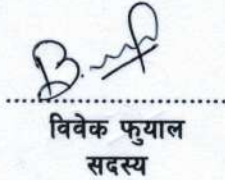 विवेक फुयाल
सदस्य